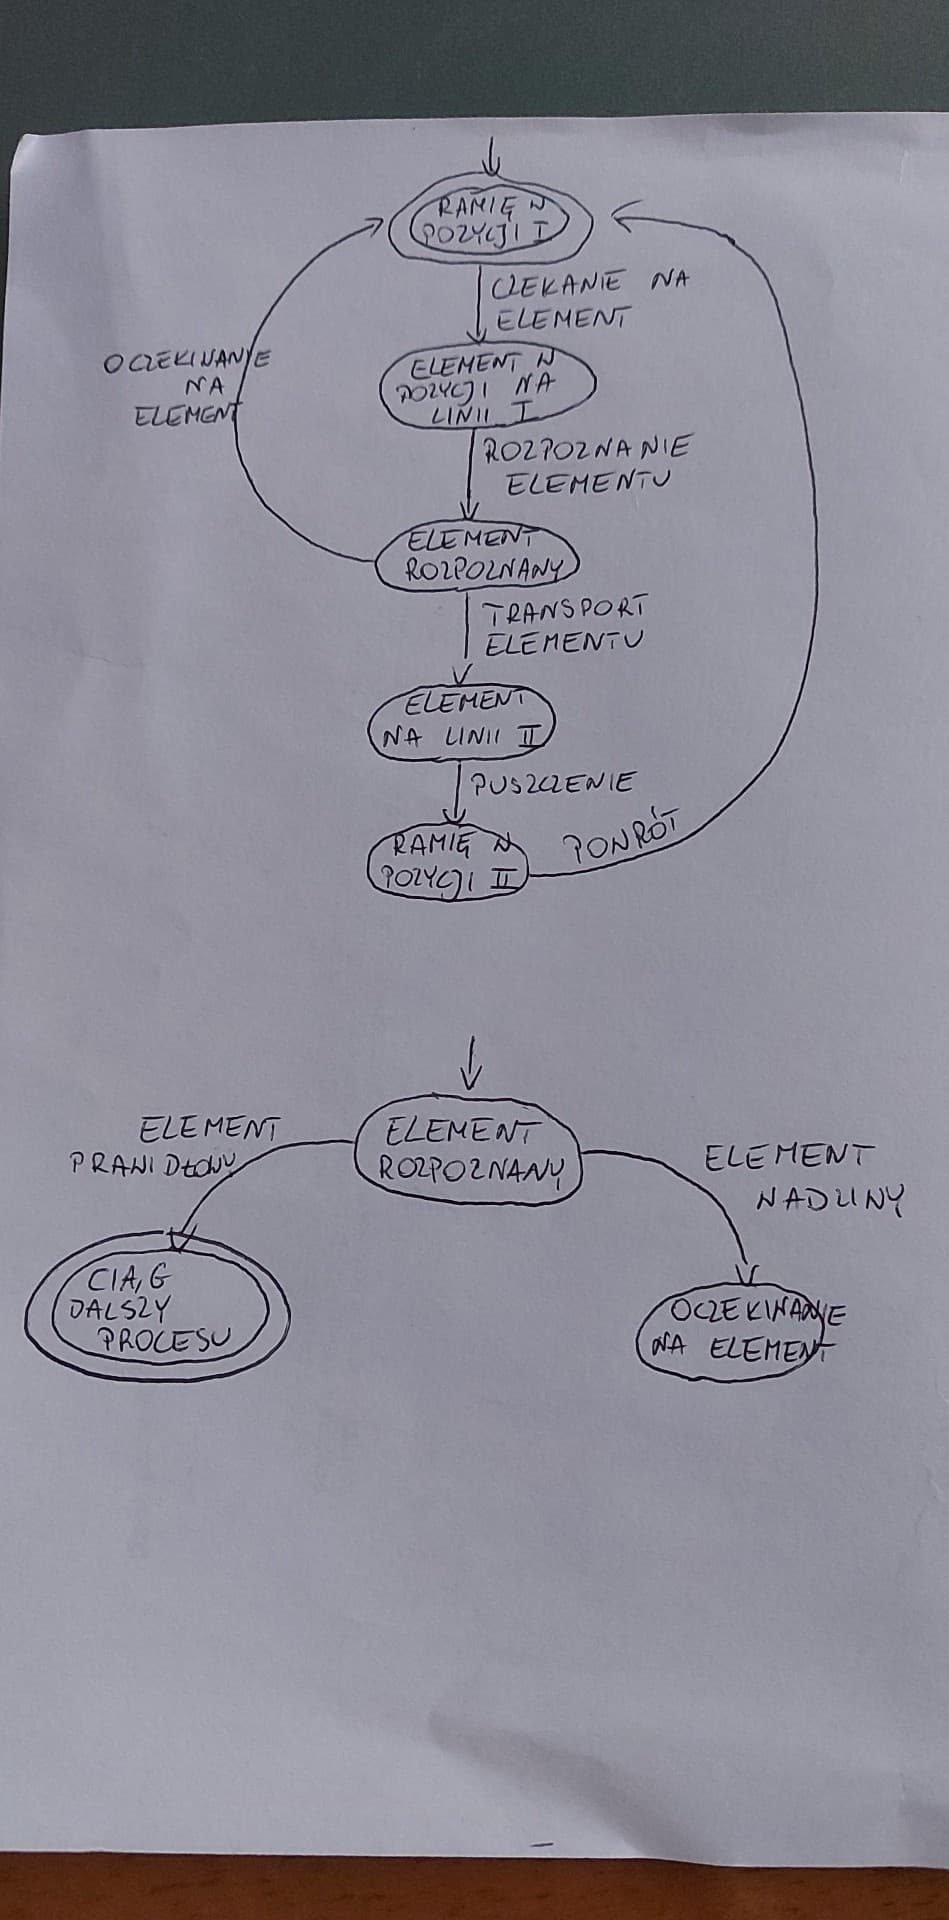 RAMIĘ W
POZYCJI I
CZEKANIE NA
ELEMENT
OCZEKIWANIE
NA
ELEMENT
ELEMENT W
POZYCJI NA
LINII I
ROZPOZNANIE
ELEMENTU
ELEMENT
ROZPOZNANY
TRANSPORT
ELEMENTU
ELEMENT
NA LINII II
PUSZCZENIE
RAMIĘ W
POZYCJI II
POWRÓT
ELEMENT
ROZPOZNANY
ELEMENT
PRAWIDŁOWY
ELEMENT
WADLIWY
CIĄG
DALSZY
PROCESU
OCZEKIWANIE
NA ELEMENT